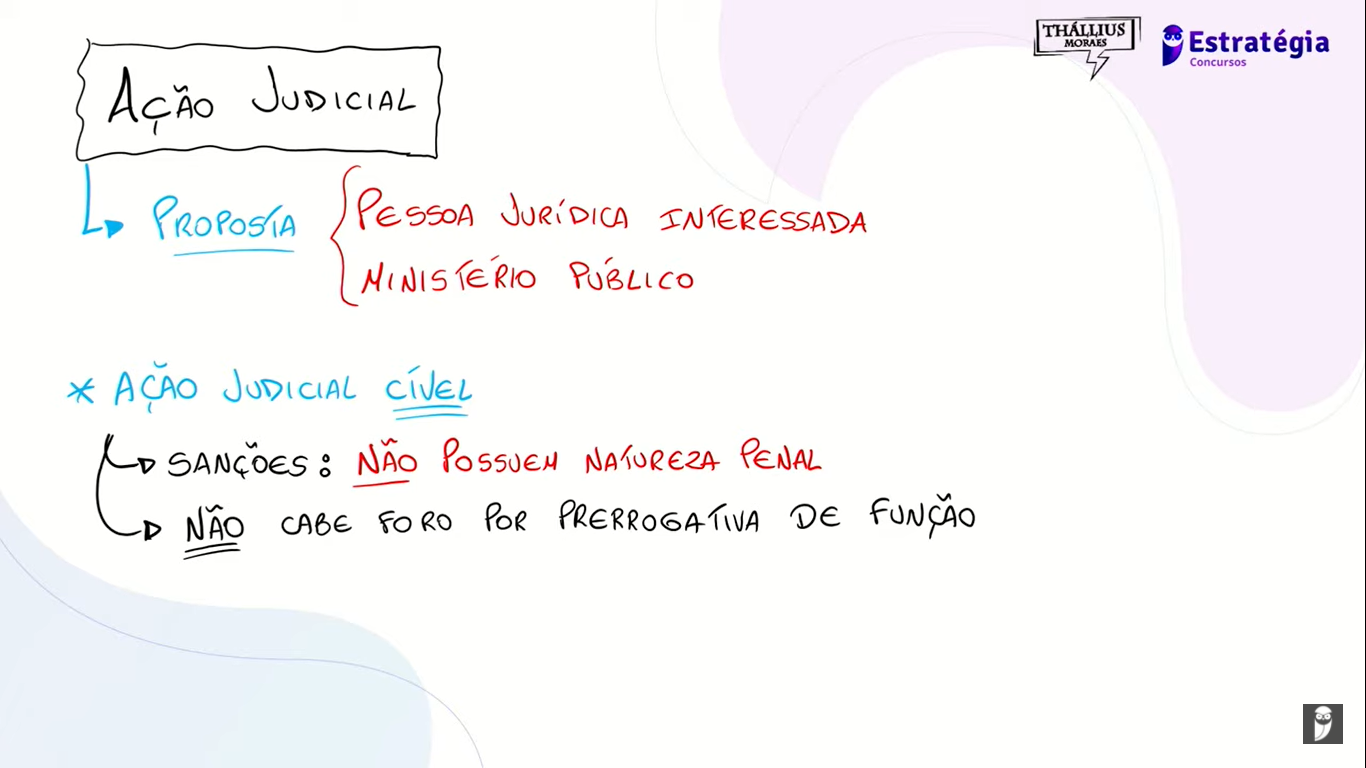 THÁLLIUS
MORAES
Estratégia
Concursos
AÇÃO JUDICIAL
PROPOSTA
PESSOA JURÍDICA INTERESSADA
MINISTÉRIO PÚBLICO
* AÇÃO JUDICIAL CÍVEL
SANÇÕES: NÃO POSSUEM NATUREZA PENAL
NÃO CABE FORO POR PRERROGATIVA DE FUNÇÃO